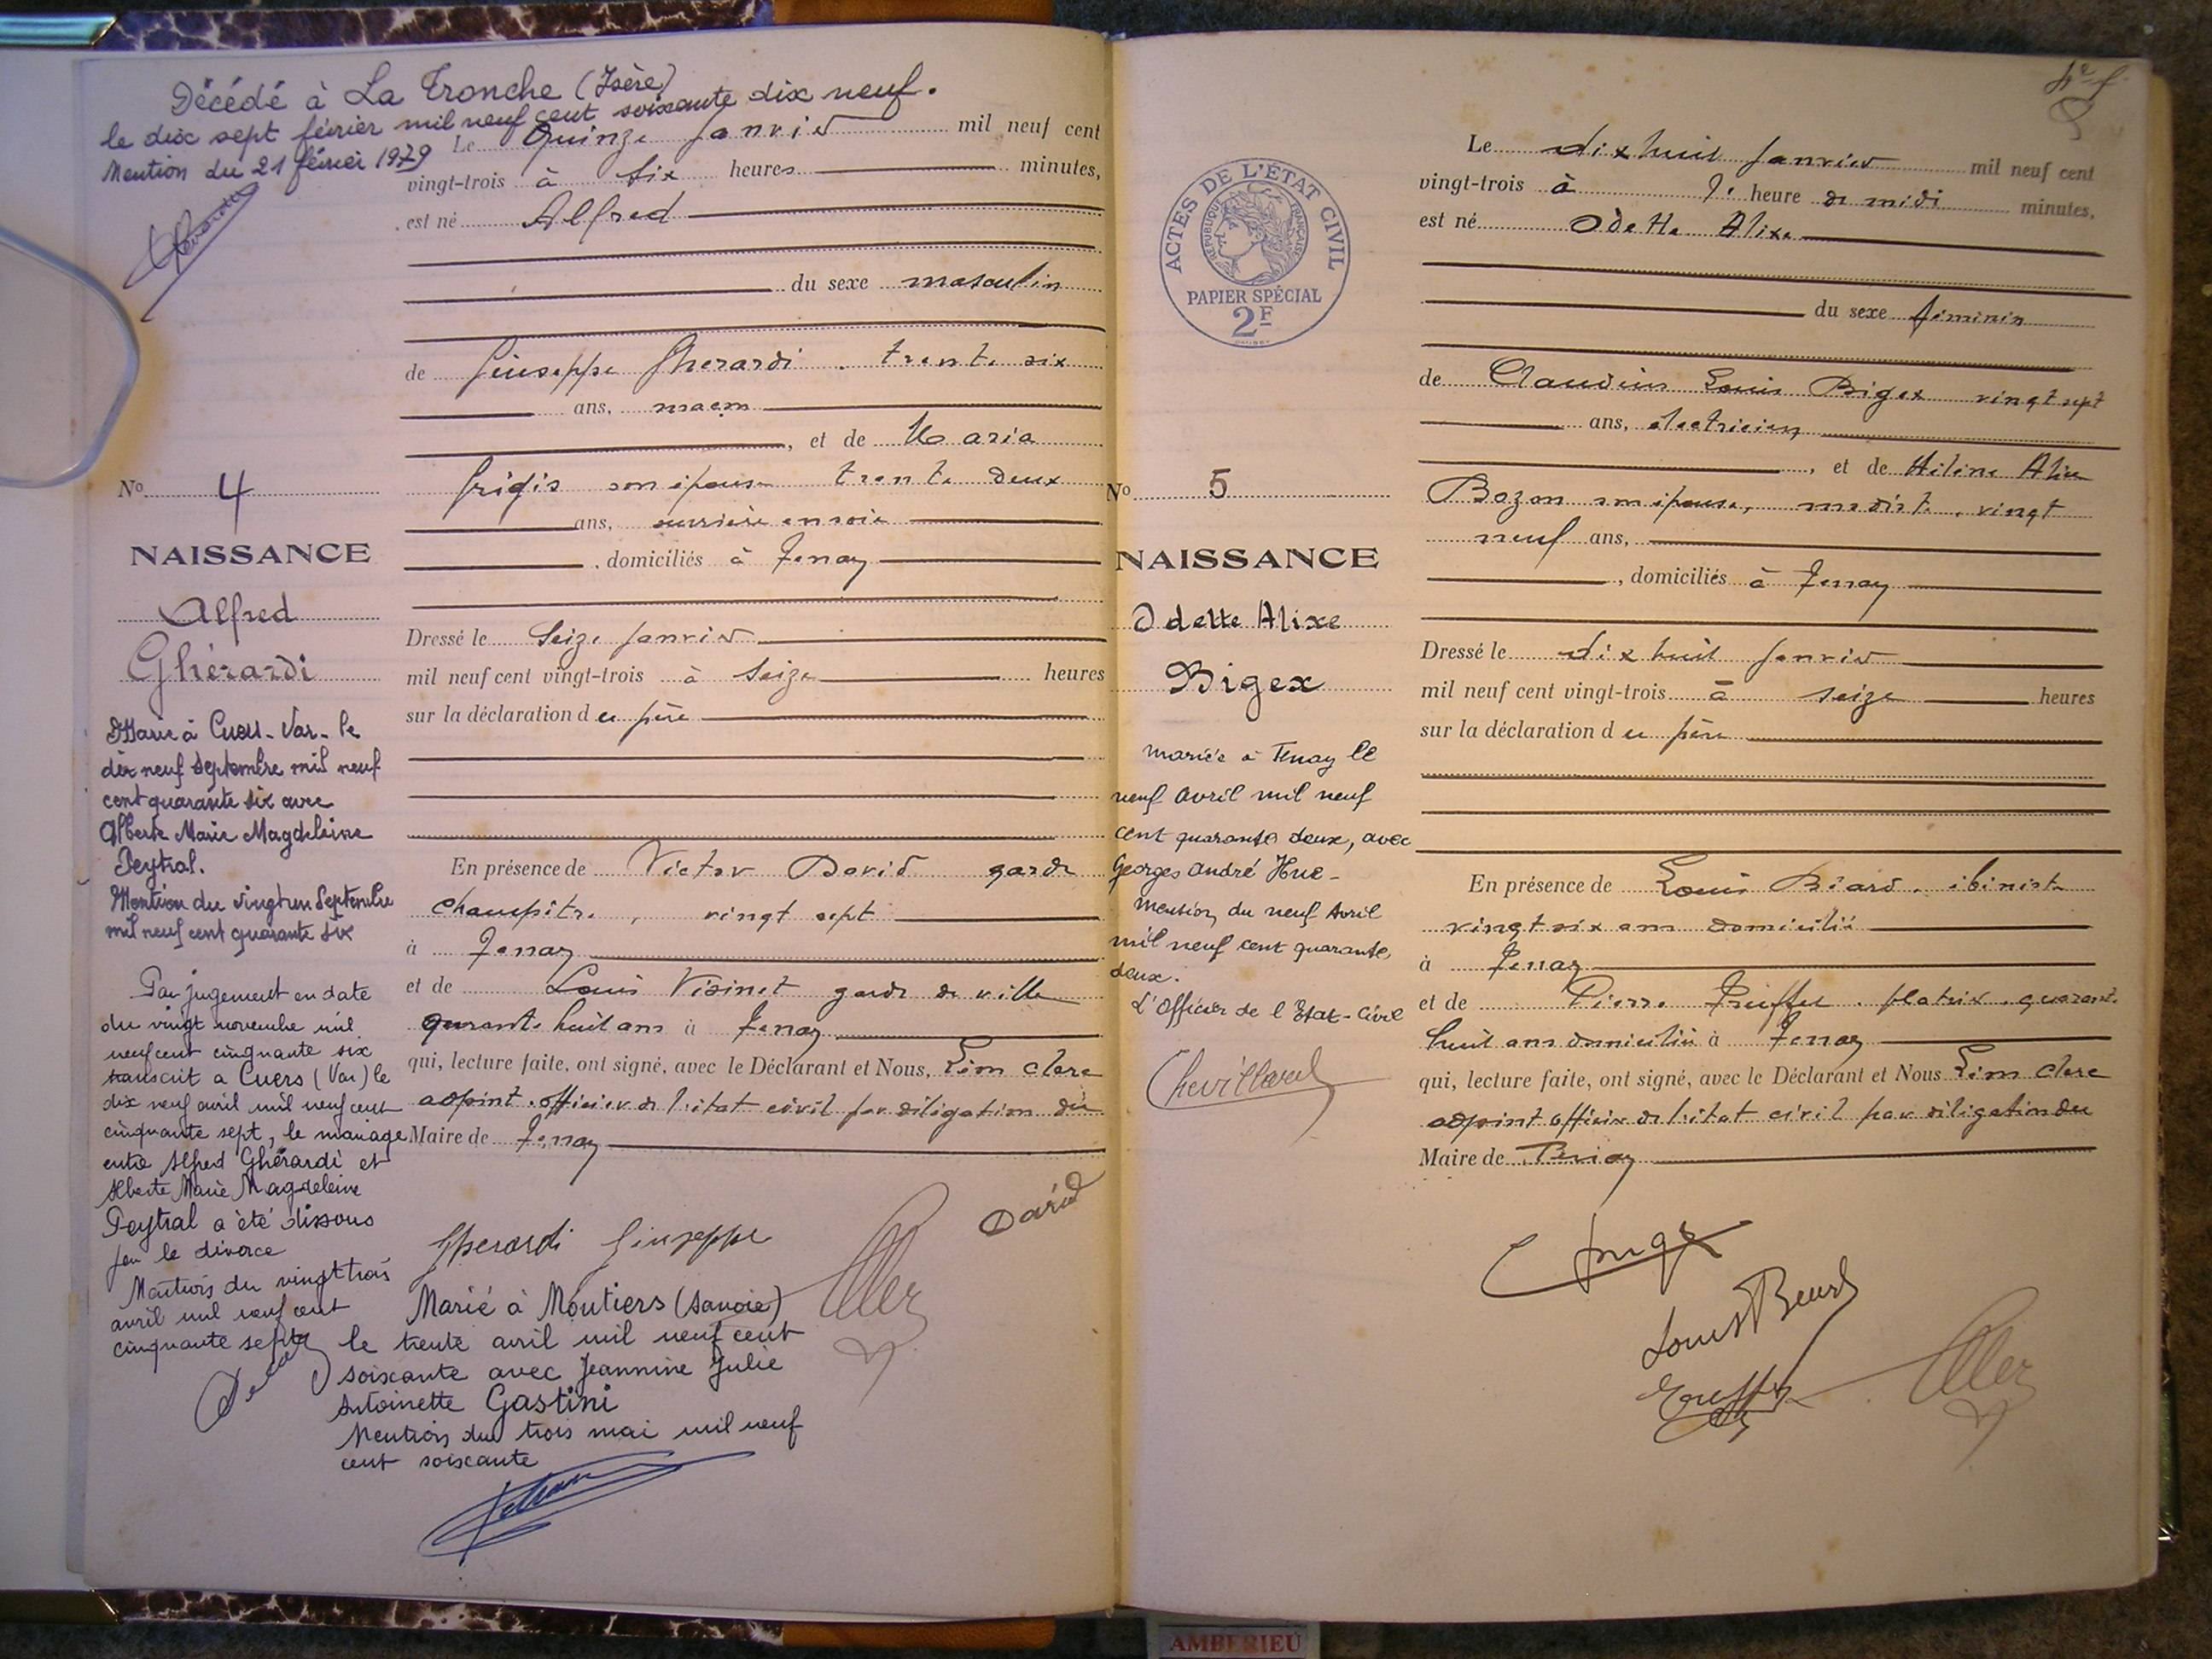 Décédé à La Tronche (Isère)
le dix sept février mil neuf cent soixante dix neuf.
Mention du 21 février 1979
Le quinze janvier mil neuf cent
vingt-trois à six heures minutes,
est né Alfred
du sexe masculin
de Giuseppe Gherardi. trente six
ans, maçon
, et de Maria
Grigis son épouse trente deux
ans, ouvrière en soie
, domiciliés à Tenay
Dressé le seize janvier
mil neuf cent vingt-trois à seize heures
sur la déclaration du père
En présence de Victor David garde
champêtre, vingt sept
à Tenay
et de Louis Visinet garde de ville
quarante huit ans à Tenay
qui, lecture faite, ont signé, avec le Déclarant et Nous, Léon Clerc
adjoint officier de l'état civil par délégation du
Maire de Tenay
Gherardi Giuseppe
David
No 4
NAISSANCE
Alfred
Ghérardi
Marié à Cuers - Var - le
dix neuf septembre mil neuf
cent quarante six avec
Alberte Marie Magdeleine
Peytral.
Mention du vingt un Septembre
mil neuf cent quarante six
Par jugement en date
du vingt novembre mil
neuf cent cinquante six
transcrit a Cuers (Var) le
dix neuf avril mil neuf cent
cinquante sept, le mariage
entre Alfred Ghérardi et
Alberte Marie Magdeleine
Peytral a été dissous
par le divorce
Mention du vingt trois
avril mil neuf cent
cinquante sept
Marié à Moutiers (Savoie)
le trente avril mil neuf cent
soixante avec Jeannine Julie
Antoinette Gastini
Mention du trois mai mil neuf
cent soixante
ACTES DE L'ÉTAT CIVIL
RÉPUBLIQUE FRANÇAISE
PAPIER SPÉCIAL
2F
No 5
NAISSANCE
Odette Alixe
Bigex
mariée à Tenay le
neuf avril mil neuf
cent quarante deux, avec
Georges André Hue -
Mention du neuf Avril
mil neuf cent quarante
deux.
L'Officier de l'Etat-Civil
Chevillard
Le dix huit janvier mil neuf cent
vingt-trois à heure de midi minutes,
est né Odette Alixe
du sexe féminin
de Claudius Louis Bigex vingt sept
ans, électricien
, et de Hélène Alixe
Bozon son épouse, modiste, vingt
neuf ans,
, domiciliés à Tenay
Dressé le dix huit janvier
mil neuf cent vingt-trois à seize heures
sur la déclaration du père
En présence de Louis ébéniste
vingt six ans domicilié
à Tenay
et de Pierre platrier. quarante
huit ans domicilié à Tenay
qui, lecture faite, ont signé, avec le Déclarant et Nous Léon Clerc
adjoint officier de l'état civil par délégation du
Maire de Tenay
AMBERIEU